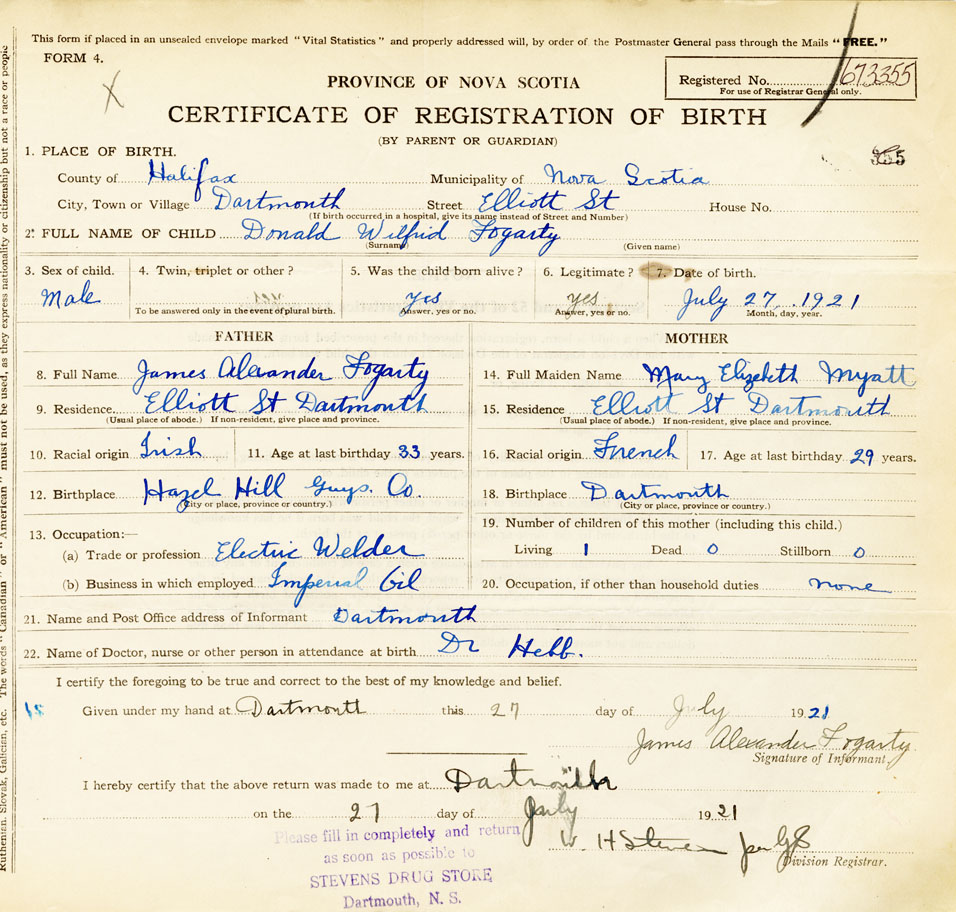 This form if placed in an unsealed envelope marked "Vital Statistics" and properly addressed will, by order of the Postmaster General pass through the Mails "FREE."
FORM 4.
PROVINCE OF NOVA SCOTIA
Registered No. 673355
For use of Registrar General only.
CERTIFICATE OF REGISTRATION OF BIRTH
(BY PARENT OR GUARDIAN)
1. PLACE OF BIRTH.
County of Halifax Municipality of Nova Scotia
City, Town or Village Dartmouth Street Elliott St House No.
(If birth occurred in a hospital, give its name instead of Street and Number)
2. FULL NAME OF CHILD Donald Wilfrid Fogarty
(Surname) (Given name)
3. Sex of child. 4. Twin, triplet or other? 5. Was the child born alive? 6. Legitimate? 7. Date of birth.
Male yes yes July 27, 1921
To be answered only in the event of plural birth. Answer, yes or no. Answer, yes or no. Month, day, year.
FATHER MOTHER
8. Full Name James Alexander Fogarty 14. Full Maiden Name Mary Elizabeth Myatt
9. Residence Elliott St Dartmouth 15. Residence Elliott St Dartmouth
(Usual place of abode.) If non-resident, give place and province. (Usual place of abode.) If non-resident, give place and province.
10. Racial origin Irish 11. Age at last birthday 33 years. 16. Racial origin French 17. Age at last birthday 29 years.
12. Birthplace Hazel Hill Guys. Co. 18. Birthplace Dartmouth
(City or place, province or country.) (City or place, province or country.)
13. Occupation:— 19. Number of children of this mother (including this child.)
(a) Trade or profession Electric Welder Living 1 Dead 0 Stillborn 0
(b) Business in which employed Imperial Oil 20. Occupation, if other than household duties none
21. Name and Post Office address of Informant Dartmouth
22. Name of Doctor, nurse or other person in attendance at birth Dr Hebb.
I certify the foregoing to be true and correct to the best of my knowledge and belief.
Given under my hand at Dartmouth this 27 day of July 1921
James Alexander Fogarty
Signature of Informant
I hereby certify that the above return was made to me at Dartmouth
on the 27 day of July 1921
W. H Stevens
Division Registrar.
Please fill in completely and return
as soon as possible to
STEVENS DRUG STORE
Dartmouth, N. S.
Ruthenian, Slovak, Galician, etc. The words "Canadian" or "American" must not be used, as they express nationality or citizenship but not a race or people